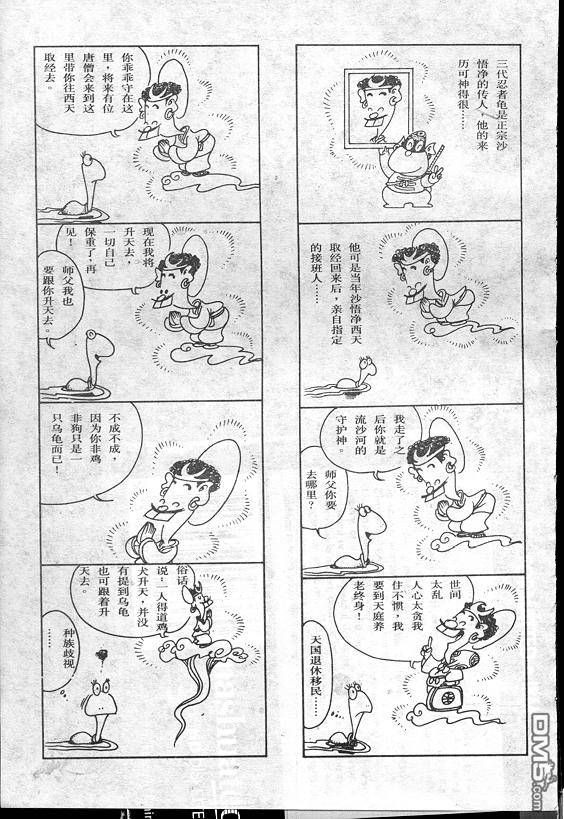 三代忍者龟是正宗沙
悟净的传人，他的来
历可神得很……
他可是当年沙悟净西天
取经回来后，亲自指定
的接班人……
我走了之
后你就是
流沙河的
守护神。
师父你要
去哪里？
世间
太乱
人心太贪我
住不惯，我
要到天庭养
老终身！
天国退休移民……
你乖乖守在这
里，将来有位
唐僧会来到这
里带你往西天
取经去。
现在我将
升天去，
一切自己
保重了，再
见！
师父我也
要跟你升天去。
不成不成，
因为你非鸡
非狗只是一
只乌龟而已！
俗话
说！一人得道鸡
犬升天，并没
有提到乌龟
也可跟着升
天去。
……种族歧视
……
DM5.com